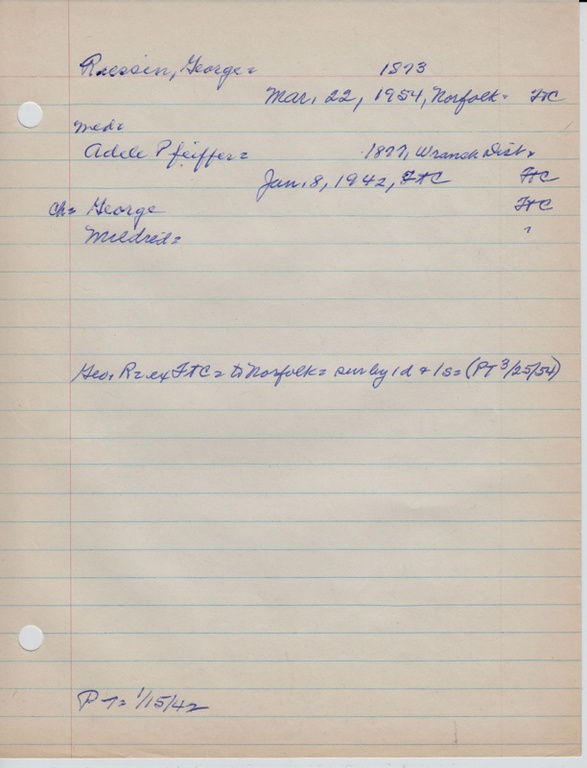 Racssin, George = 1873
Mar. 22, 1954, Norfolk - FtC
med =
Adele Pfeiffer = 1877, Wranck Dist.
Jan. 8, 1942, FtC FtC
ch = George FtC
Mildred = "
Geo. R = ex FtC = d Norfolk = sur by 1d + 1s = (PT 3/25/54)
PT = 1/15/42